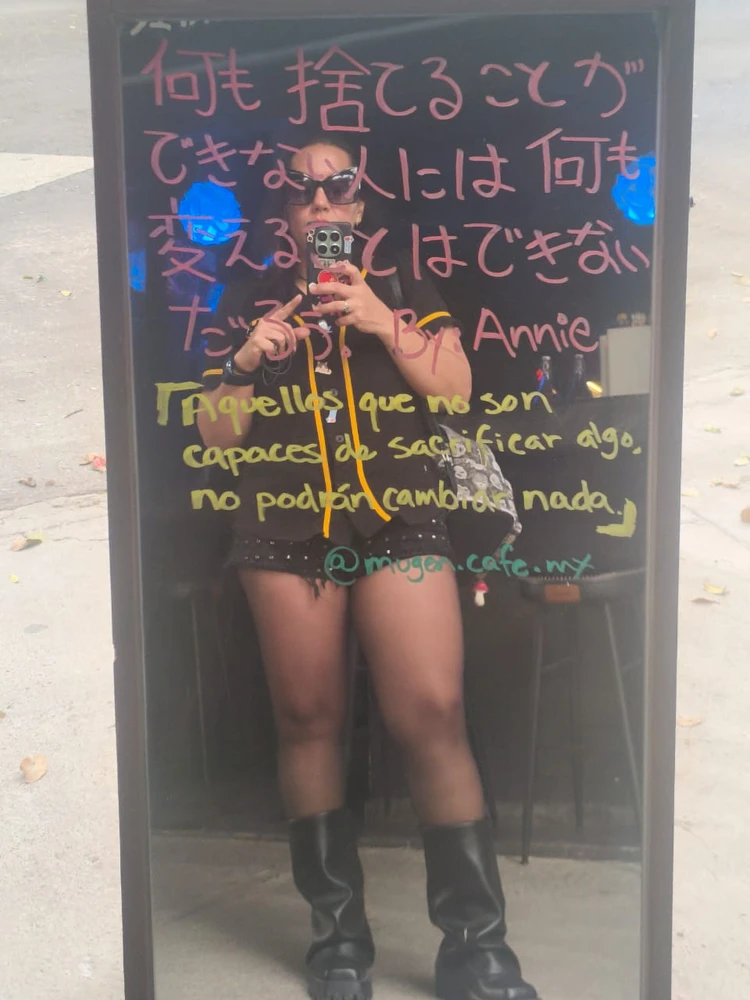 何も捨てることが
できない人には何も
変えることはできない
だろう。By: Annie
「Aquellos que no son
capaces de sacrificar algo,
no podrán cambiar nada.」
@mugen.cafe.mx